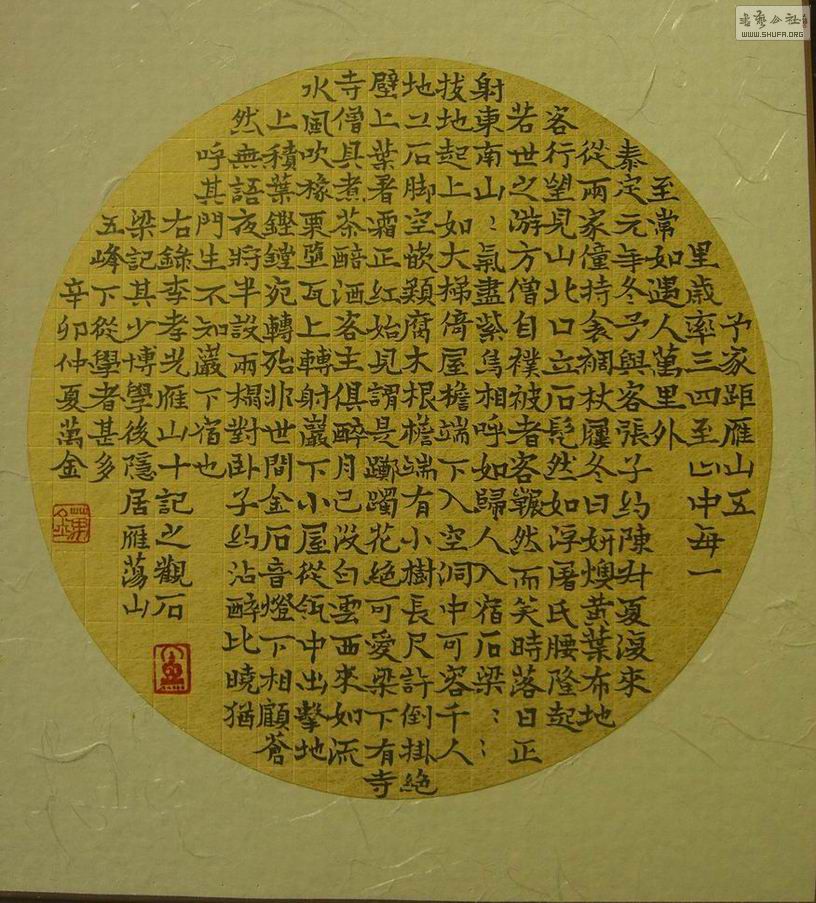 予家距雁山五
里歲率三四至山中每一
至常如遇人萬里外
泰定元年冬予與客張子約陳叔夏復來
從兩家僮持衾裯杖屨冬日妍燠黃葉布地
客行望見山北口立石髡然如浮屠氏腰隆起
若世之游方僧自襆被者客囅然而笑時落日正
射東南山〻氣盡紫鳥相呼如歸人入宿石梁〻〻
拔地起上如大梯倚屋檐端下入空洞中可容千人
地上石脚空嵌類腐木根檐端有小樹長尺許倒掛絕
壁上葉著霜正紅始見謂是躑躅花絕可愛梁下有寺
寺僧具煮茶醅酒客主俱醉月已沒白雲西來如流
水風吹橡栗墮瓦上轉射巖下小屋從瓴中出擊地
上積葉鏗鏜宛轉殆非世間金石音燈下相顧蒼
然無語夜將半設兩榻對卧子約沾醉比曉猶
呼其門生不知巖下宿也
右錄李孝光雁山十記之觀石
梁記其少博學後隱居雁蕩山
五峰下從學者甚多
辛卯仲夏萬金
書藝公社
WWW.SHUFA.ORG